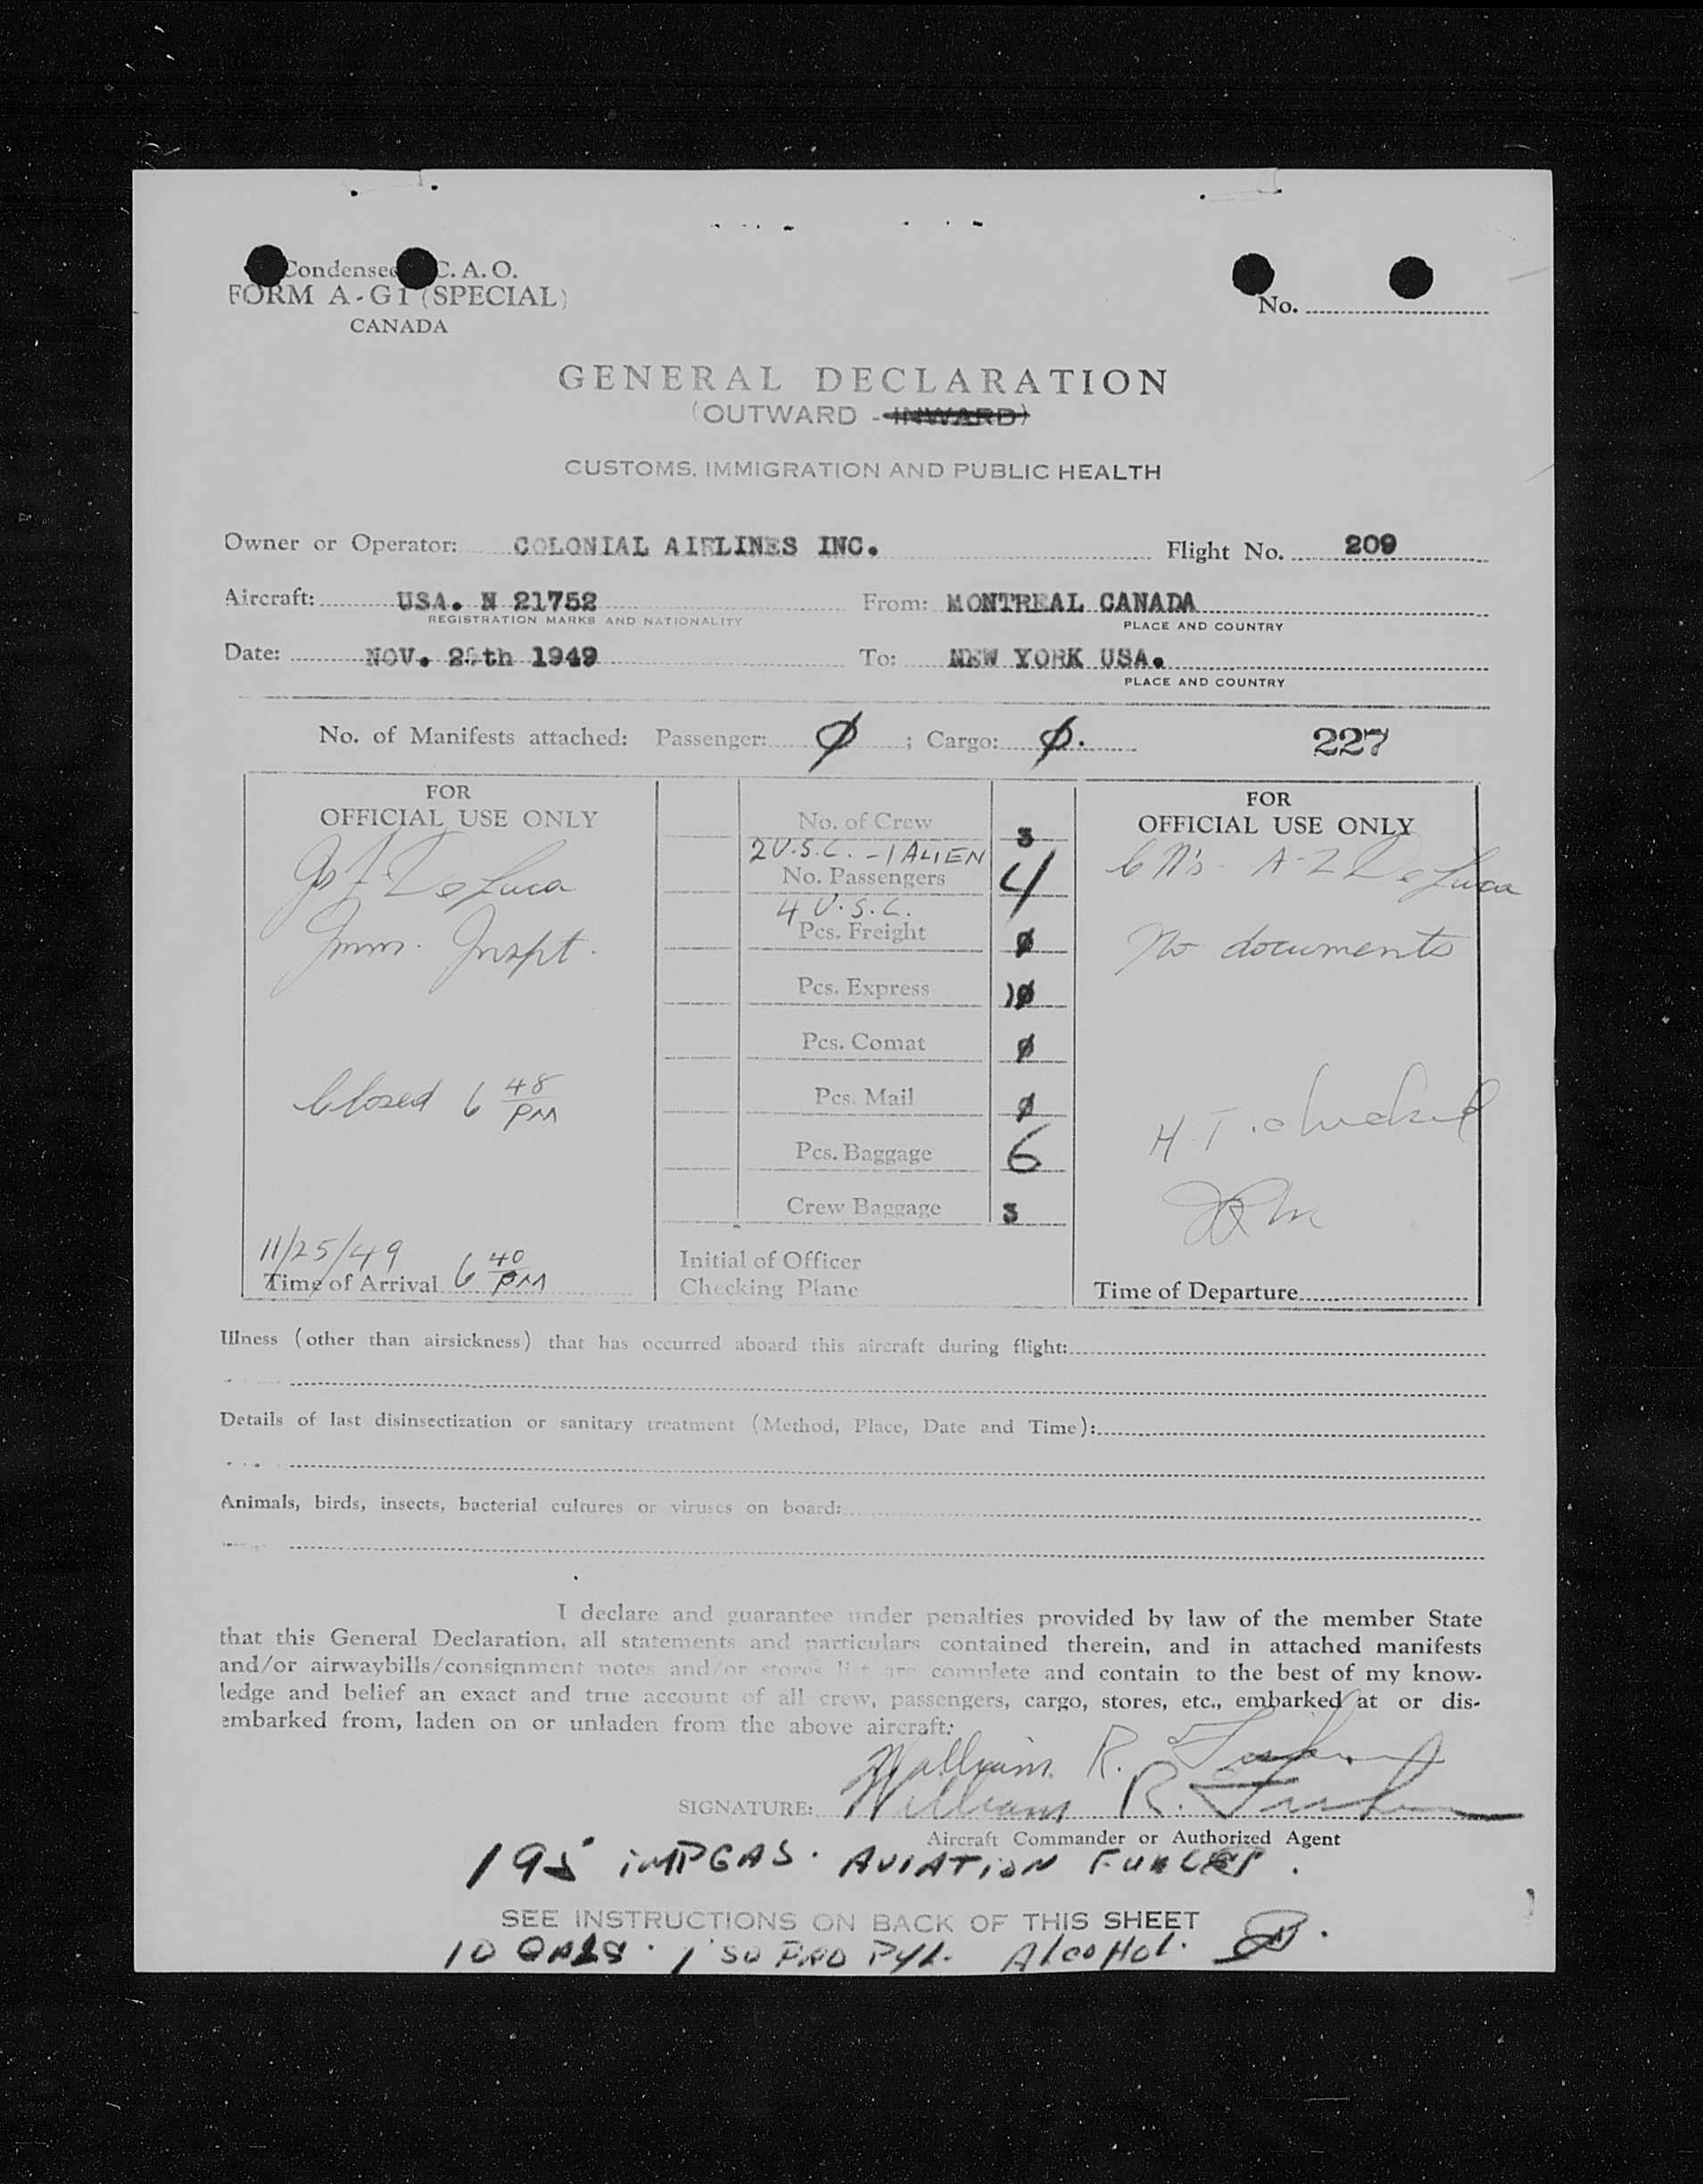 Condensed C. A. O.
FORM A-G1 (SPECIAL)
CANADA
No.
GENERAL DECLARATION
(OUTWARD - INWARD)
CUSTOMS, IMMIGRATION AND PUBLIC HEALTH
Owner or Operator: COLONIAL AIRLINES INC. Flight No. 209
Aircraft: USA. N 21752 From: MONTREAL CANADA
REGISTRATION MARKS AND NATIONALITY PLACE AND COUNTRY
Date: NOV. 25th 1949 To: NEW YORK USA.
PLACE AND COUNTRY
No. of Manifests attached: Passenger: Ø ; Cargo: Ø. 227
FOR
OFFICIAL USE ONLY
De Luca
Imm. Inspt.
Closed 6 48 PM
11/25/49
Time of Arrival 6 40 PM
No. of Crew 3
2 U.S.C. - 1 ALIEN
No. Passengers 4
4 U.S.C.
Pcs. Freight Ø
Pcs. Express Ø
Pcs. Comat Ø
Pcs. Mail Ø
Pcs. Baggage 6
Crew Baggage 3
Initial of Officer
Checking Plane
FOR
OFFICIAL USE ONLY
A-Z De Luca
No documents
H.T. checked
Time of Departure
Illness (other than airsickness) that has occurred aboard this aircraft during flight:
Details of last disinsectization or sanitary treatment (Method, Place, Date and Time):
Animals, birds, insects, bacterial cultures or viruses on board:
I declare and guarantee under penalties provided by law of the member State
that this General Declaration, all statements and particulars contained therein, and in attached manifests
and/or airwaybills/consignment notes and/or stores list are complete and contain to the best of my know-
ledge and belief an exact and true account of all crew, passengers, cargo, stores, etc., embarked at or dis-
embarked from, laden on or unladen from the above aircraft:
William R.
SIGNATURE: William R.
Aircraft Commander or Authorized Agent
195 IMPGAS. AVIATION
SEE INSTRUCTIONS ON BACK OF THIS SHEET
10 GALS. ISO PRO PYL. ALCOHOL.